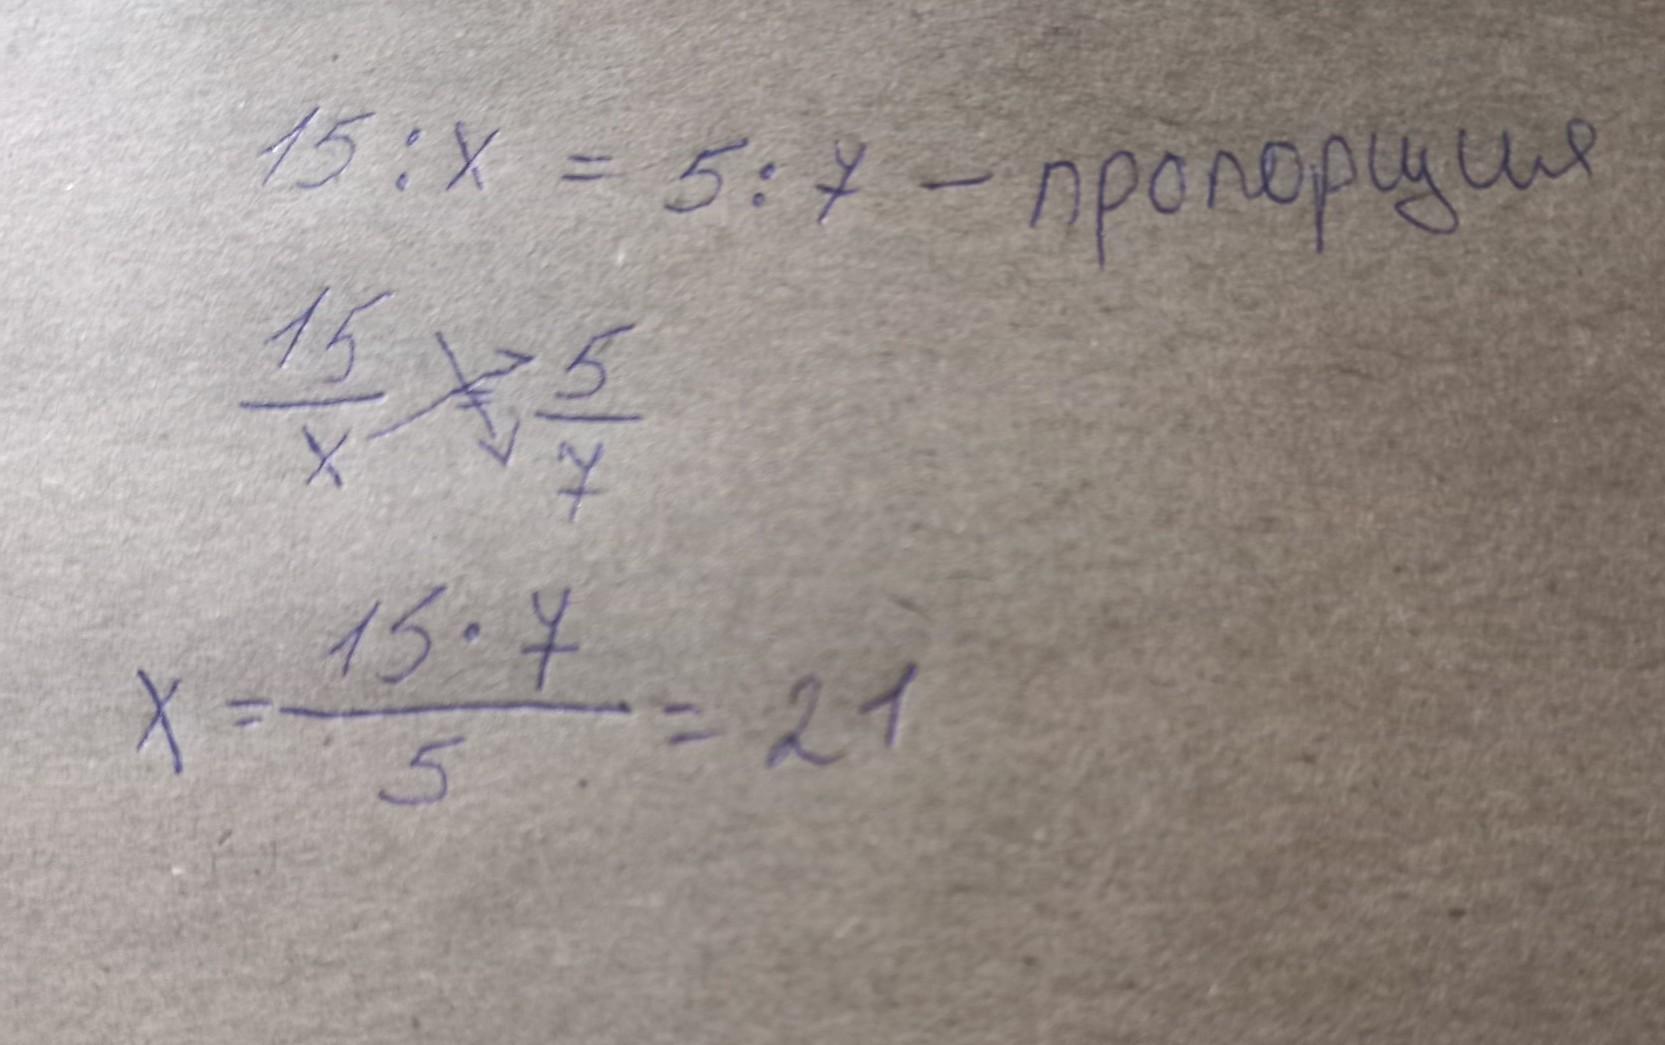 15 : x = 5 : 7 – пропорция
15/x = 5/7
x = 15 · 7 / 5 = 21